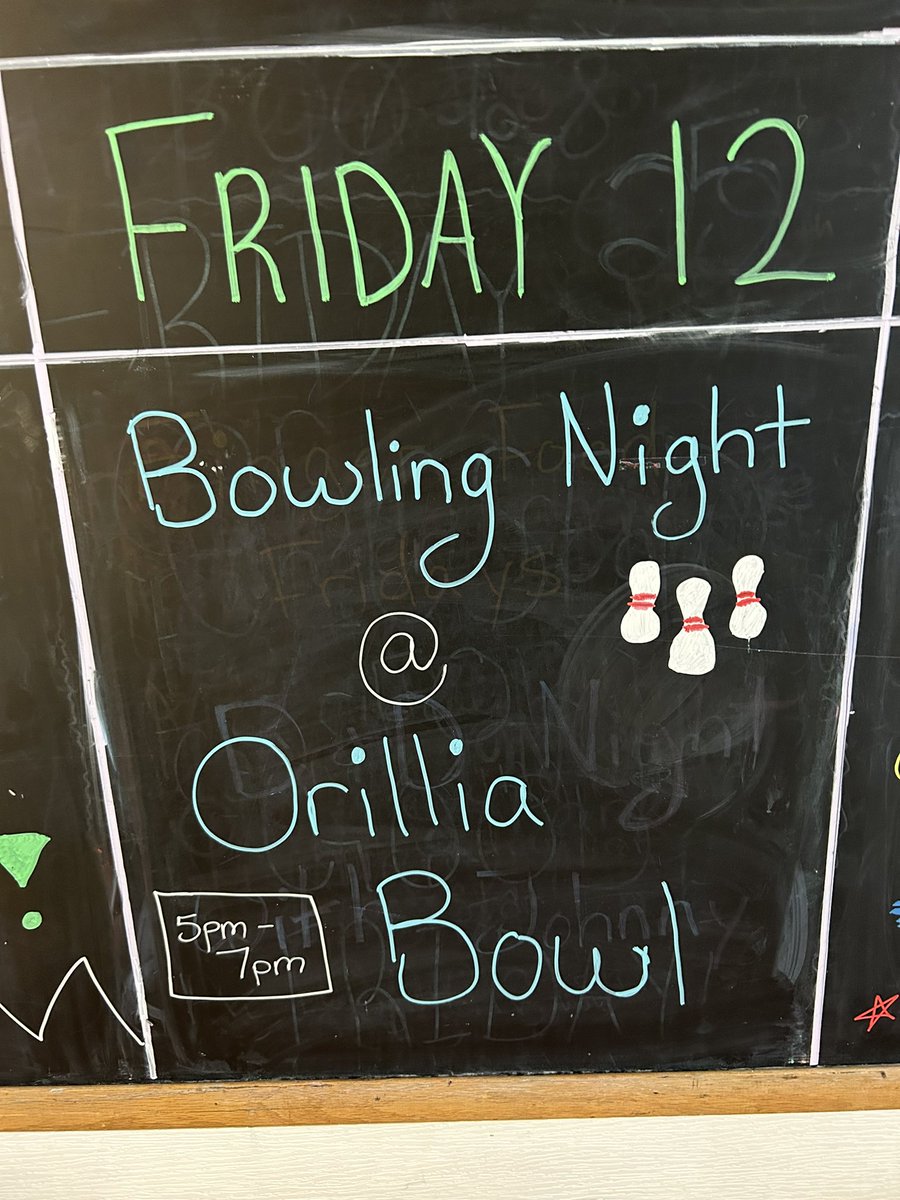 FRIDAY 12
Bowling Night
@
Orillia
Bowl
5pm -
7pm